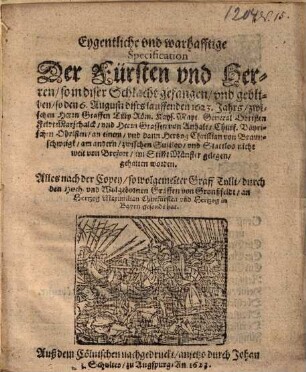 Eygentliche vnd warhafftige
Specification
Der Fürsten vnd Her-
ren / so in diser Schlacht gefangen / vnd gebli-
ben / so den 6. Augusti diß lauffenden 1623. Jahrs / zwi-
schen Herrn Graffen Tilly Röm. Kays. Mayt. General Obristen
Veldt Marschalck / vnd Herrn Graffen von Anhalt / Chur. Bayri-
schen Obristen / an einem / vnd dann Hertzog Christian von Braun-
schweigt / am andern / zwischen
weit von Breuort / im Stifft Münster gelegen /
gehalten worden.
Alles nach der Copey / so wolgemelter Graff Tilli / durch
den Hoch vnd Wolgebornen Graffen von Gronßfeldt / an
Hertzog Maximilian Churfürsten vnd Hertzog in
Bayrn gesandt hat.
Auß dem Cölnischen nachgedruckt / anjetzo durch Johan
Schultes / zu Augspurg / Jn 1623.